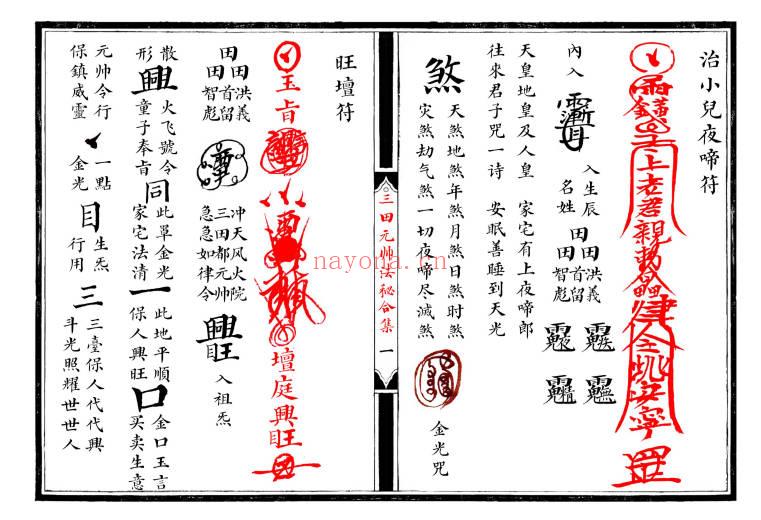 治小兒夜啼符
上老君親勅
安寧
內入
入生辰
名姓
田田田
洪義
首留
智彪
天皇地皇及人皇 家宅有上夜啼郎
往來君子咒一诗 安眠善睡到天光
煞
天煞地煞年煞月煞日煞时煞
灾煞劫气煞一切夜啼尽滅煞
金光咒
三田元帅法秘合集 一
旺壇符
玉旨
壇庭興旺
田田田
洪義
首留
智彪
冲天风火院
三田都元帅
急急如律令
入祖炁
散形
興
火飞號令
童子奉旨
同
此單金光
家宅法清
一
此地平順
保人興旺
口
金口玉言
买卖生意
元帅令行
保鎮威靈
一點
金光
目
生炁
行用
三
三臺保人代代興
斗光照耀世世人
nayona.cn